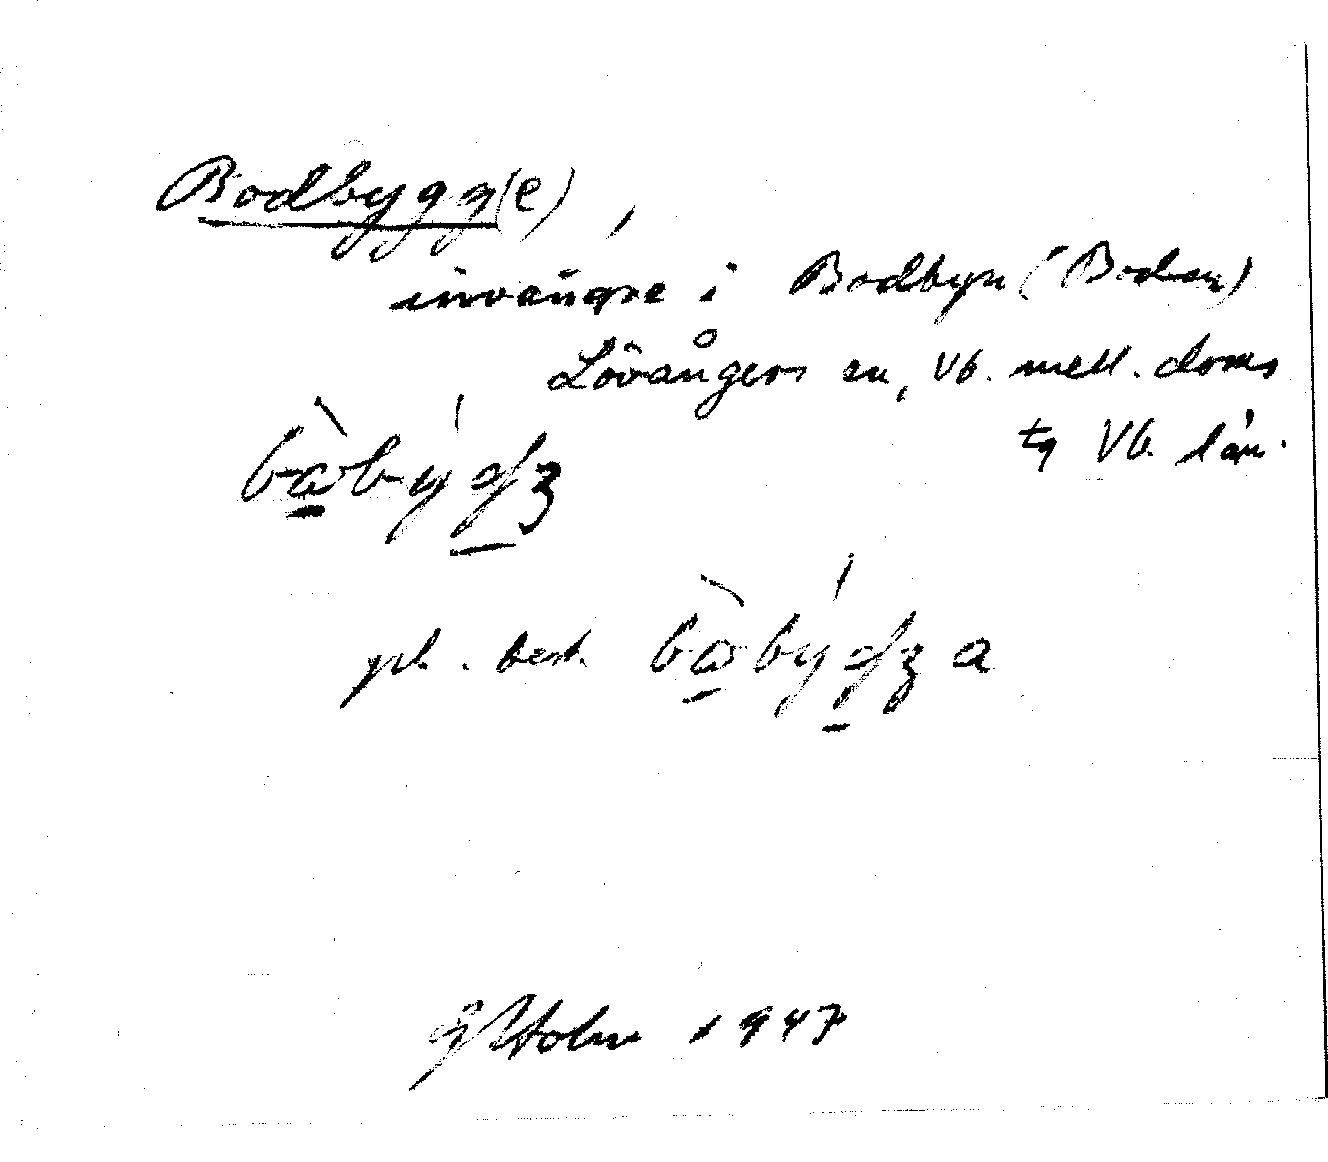 Bodbygg(e),
invånare i Bodbyn (Boden)
Lövångers sn, Vb. mell. doms
tg Vb. län.
pl. best.
G Holm 1947